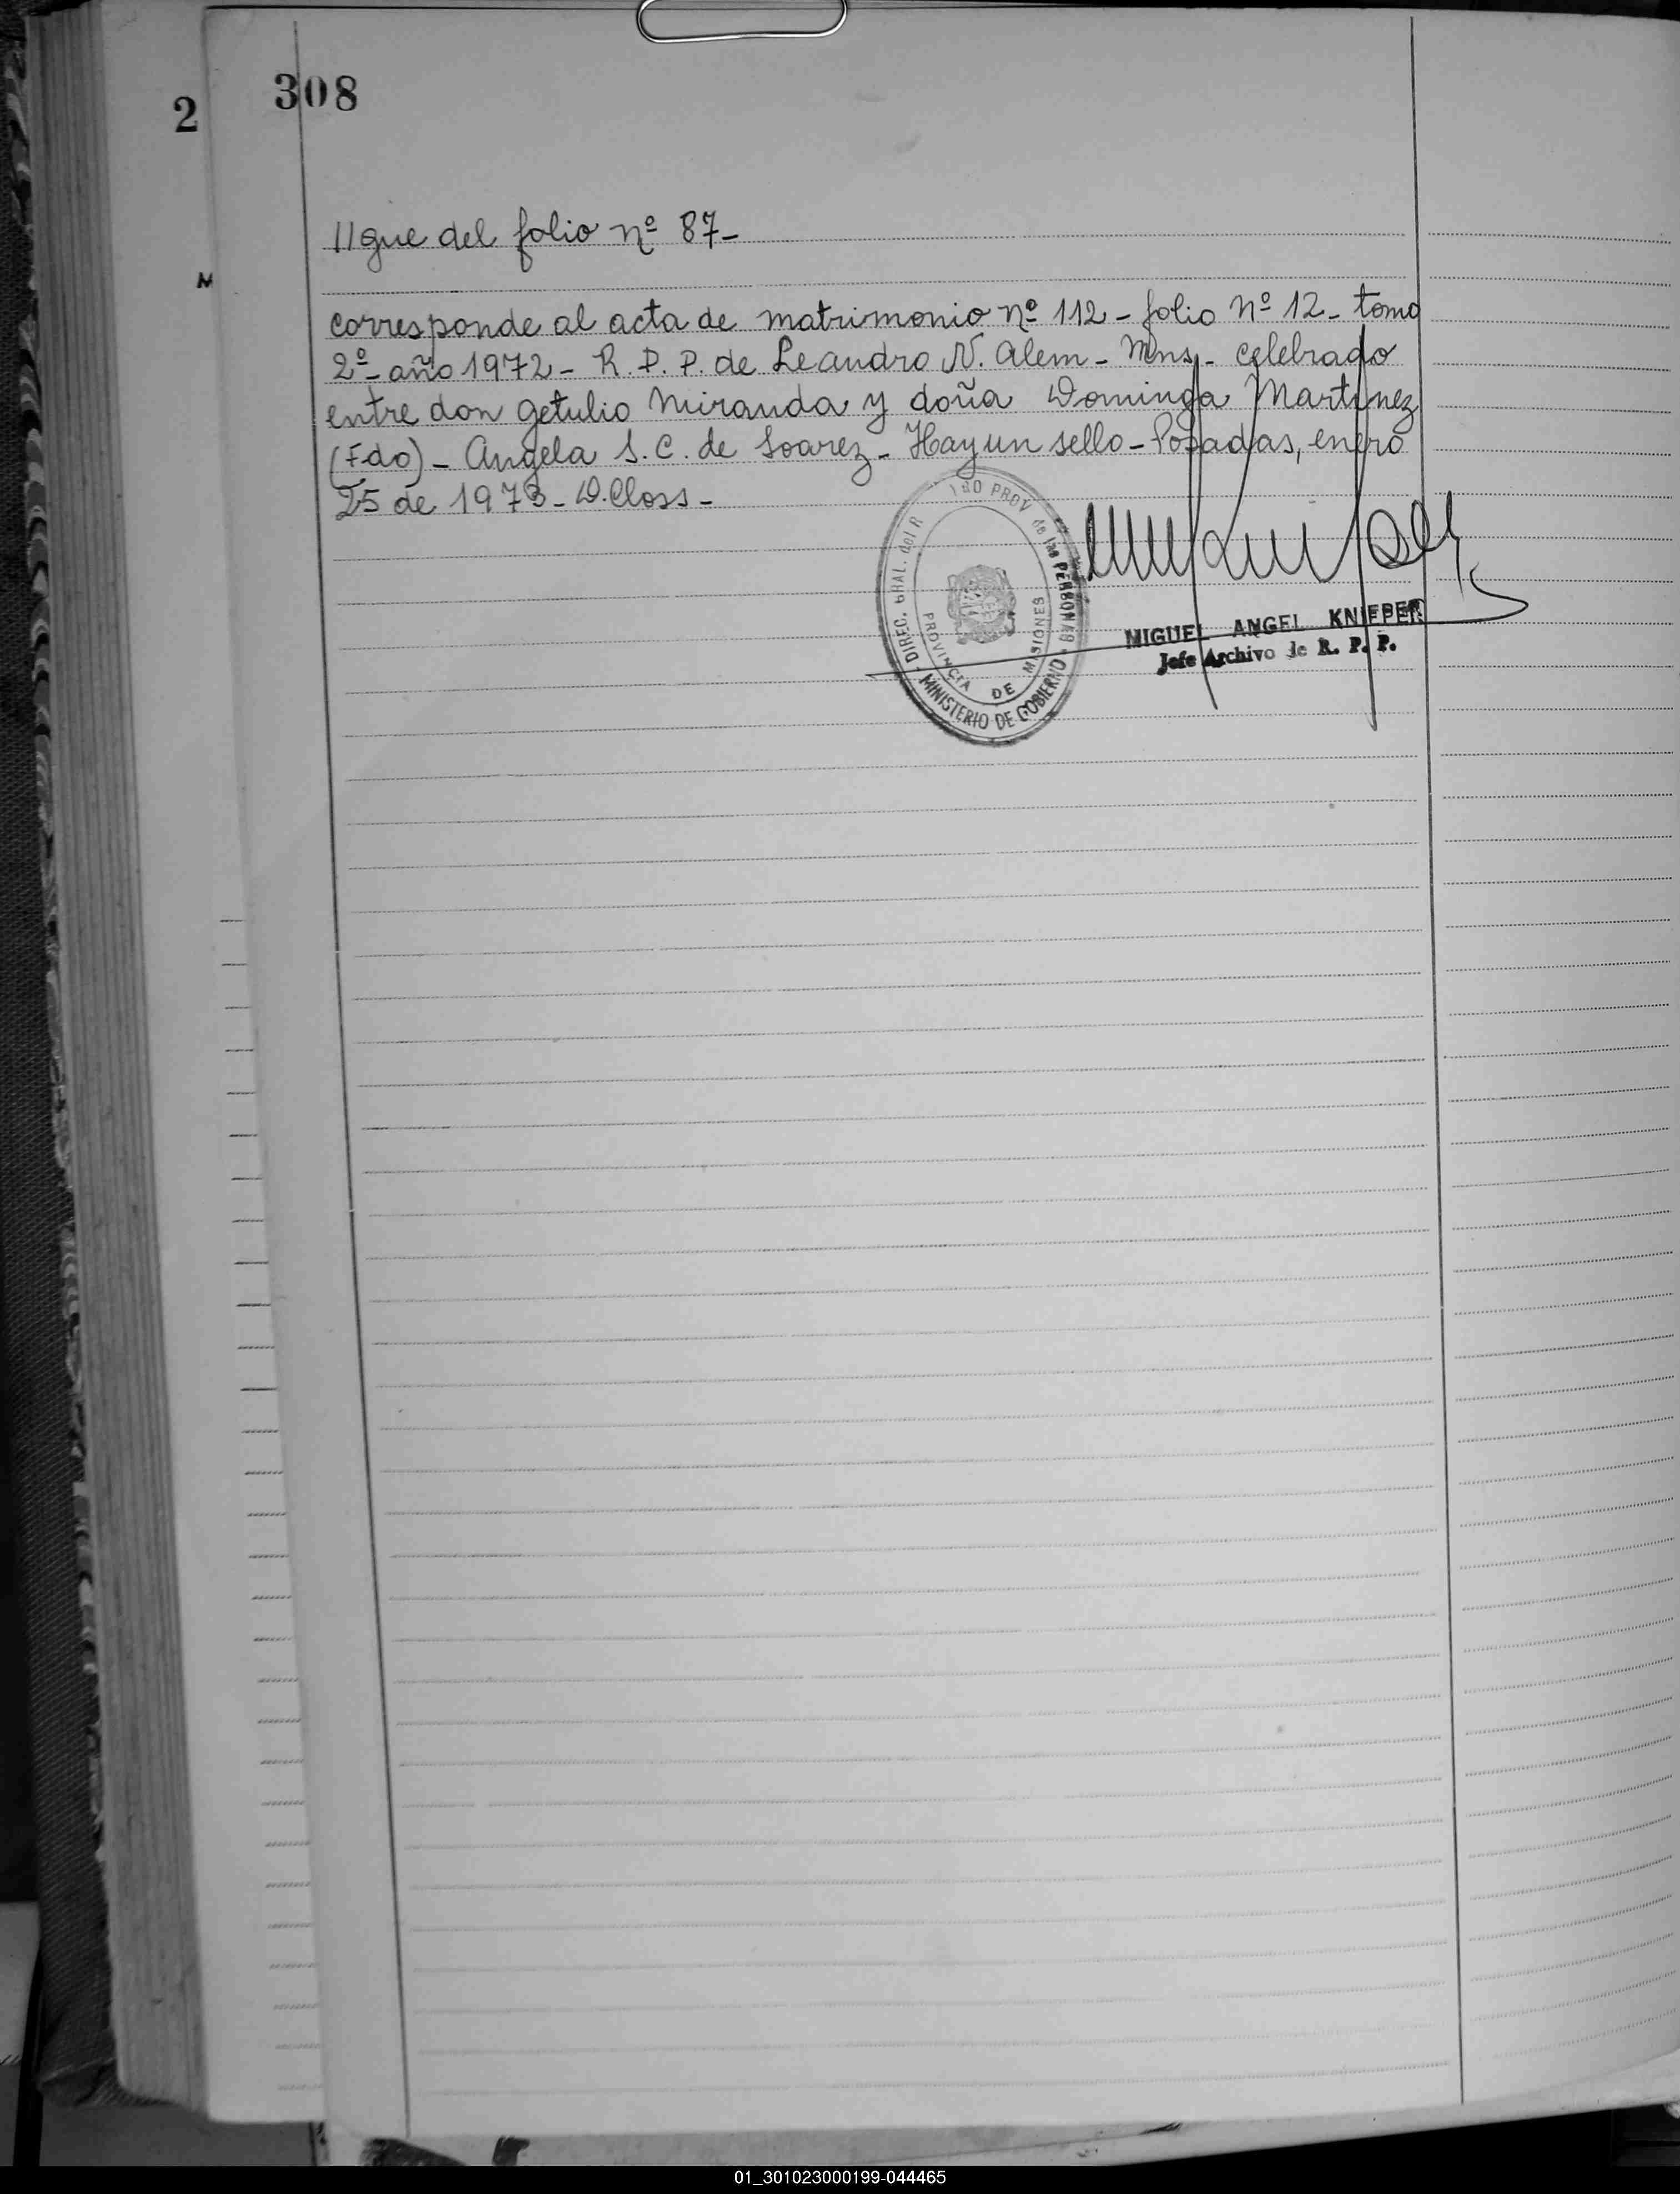 308
2
M
//gue del folio nº 87-
corresponde al acta de matrimonio nº 112 - folio nº 12 - tomo
2º - año 1972 - R. P. P. de Leandro N. Alem - Mns. - celebrado
entre don Getulio Miranda y doña Dominga Martinez
(Fdo) - Angela S. C. de Soarez - Hay un sello - Posadas, enero
25 de 1973 - D. Closs -
DIREC. GRAL. del R
PROV de las PERSONAS
MINISTERIO DE GOBIERNO
PROVINCIA DE MISIONES
MIGUEL ANGEL KNIEPER
Jefe Archivo de R. P. P.
01_301023000199-044465